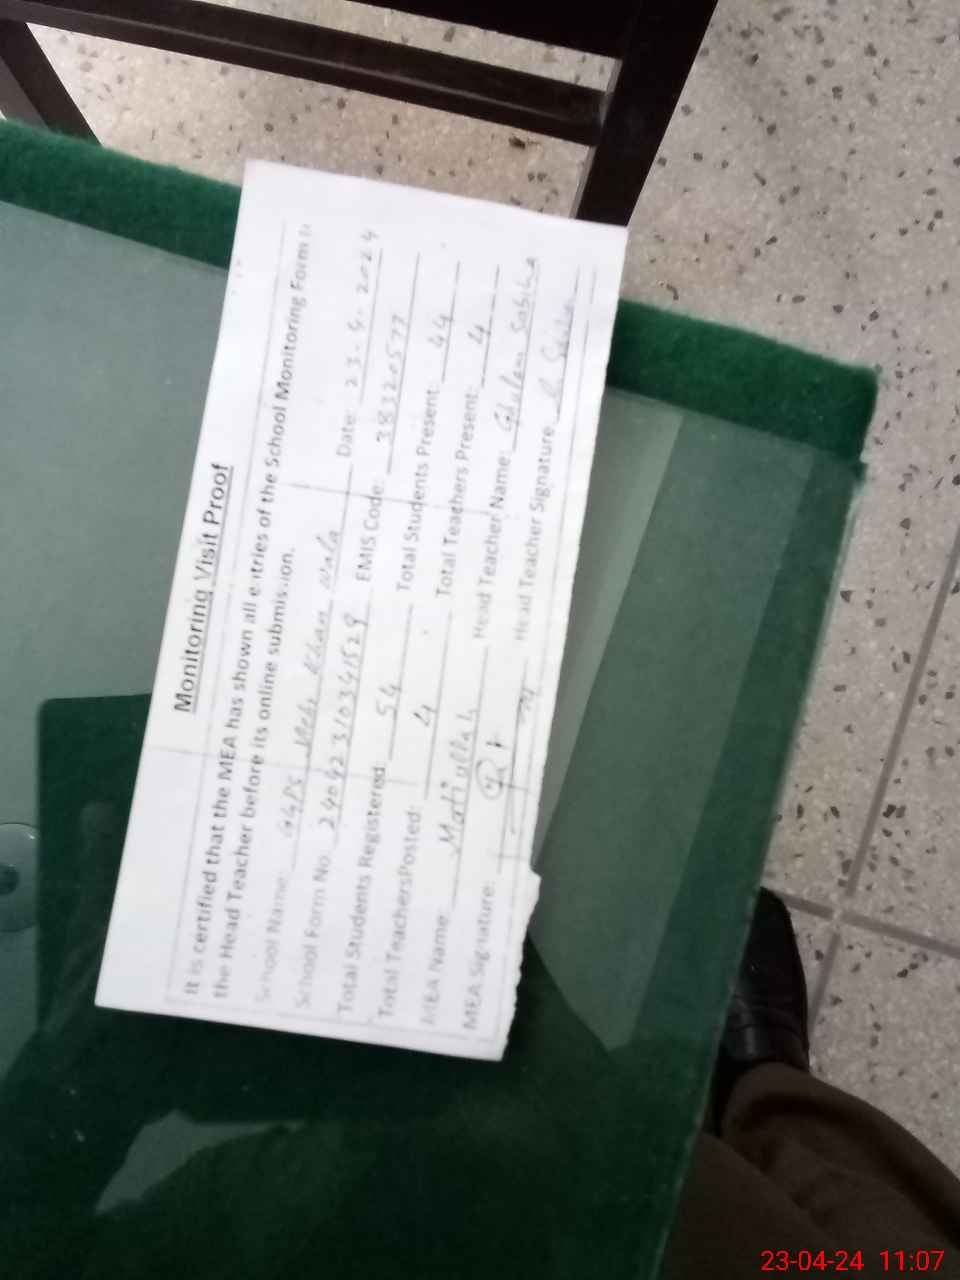 Monitoring Visit Proof
It is certified that the MEA has shown all entries of the School Monitoring Form to
the Head Teacher before its online submission.
School Name: GGPS Khan Wala Date: 23-4-2024
School Form No. EMIS Code: 38320577
Total Students Registered 54 Total Students Present: 44
Total TeachersPosted: 4 Total Teachers Present: 4
MEA Name: Matiullah Head Teacher Name: Ghulam
MEA Signature: Head Teacher Signature
23-04-24 11:07